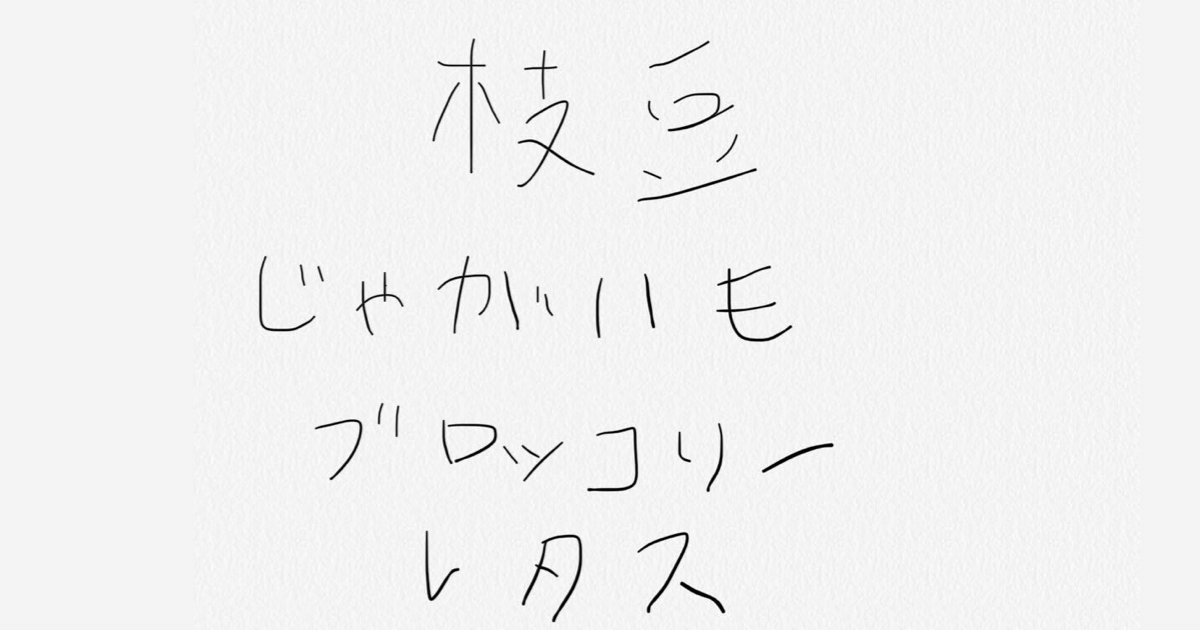 枝豆
じゃがいも
ブロッコリー
レタス